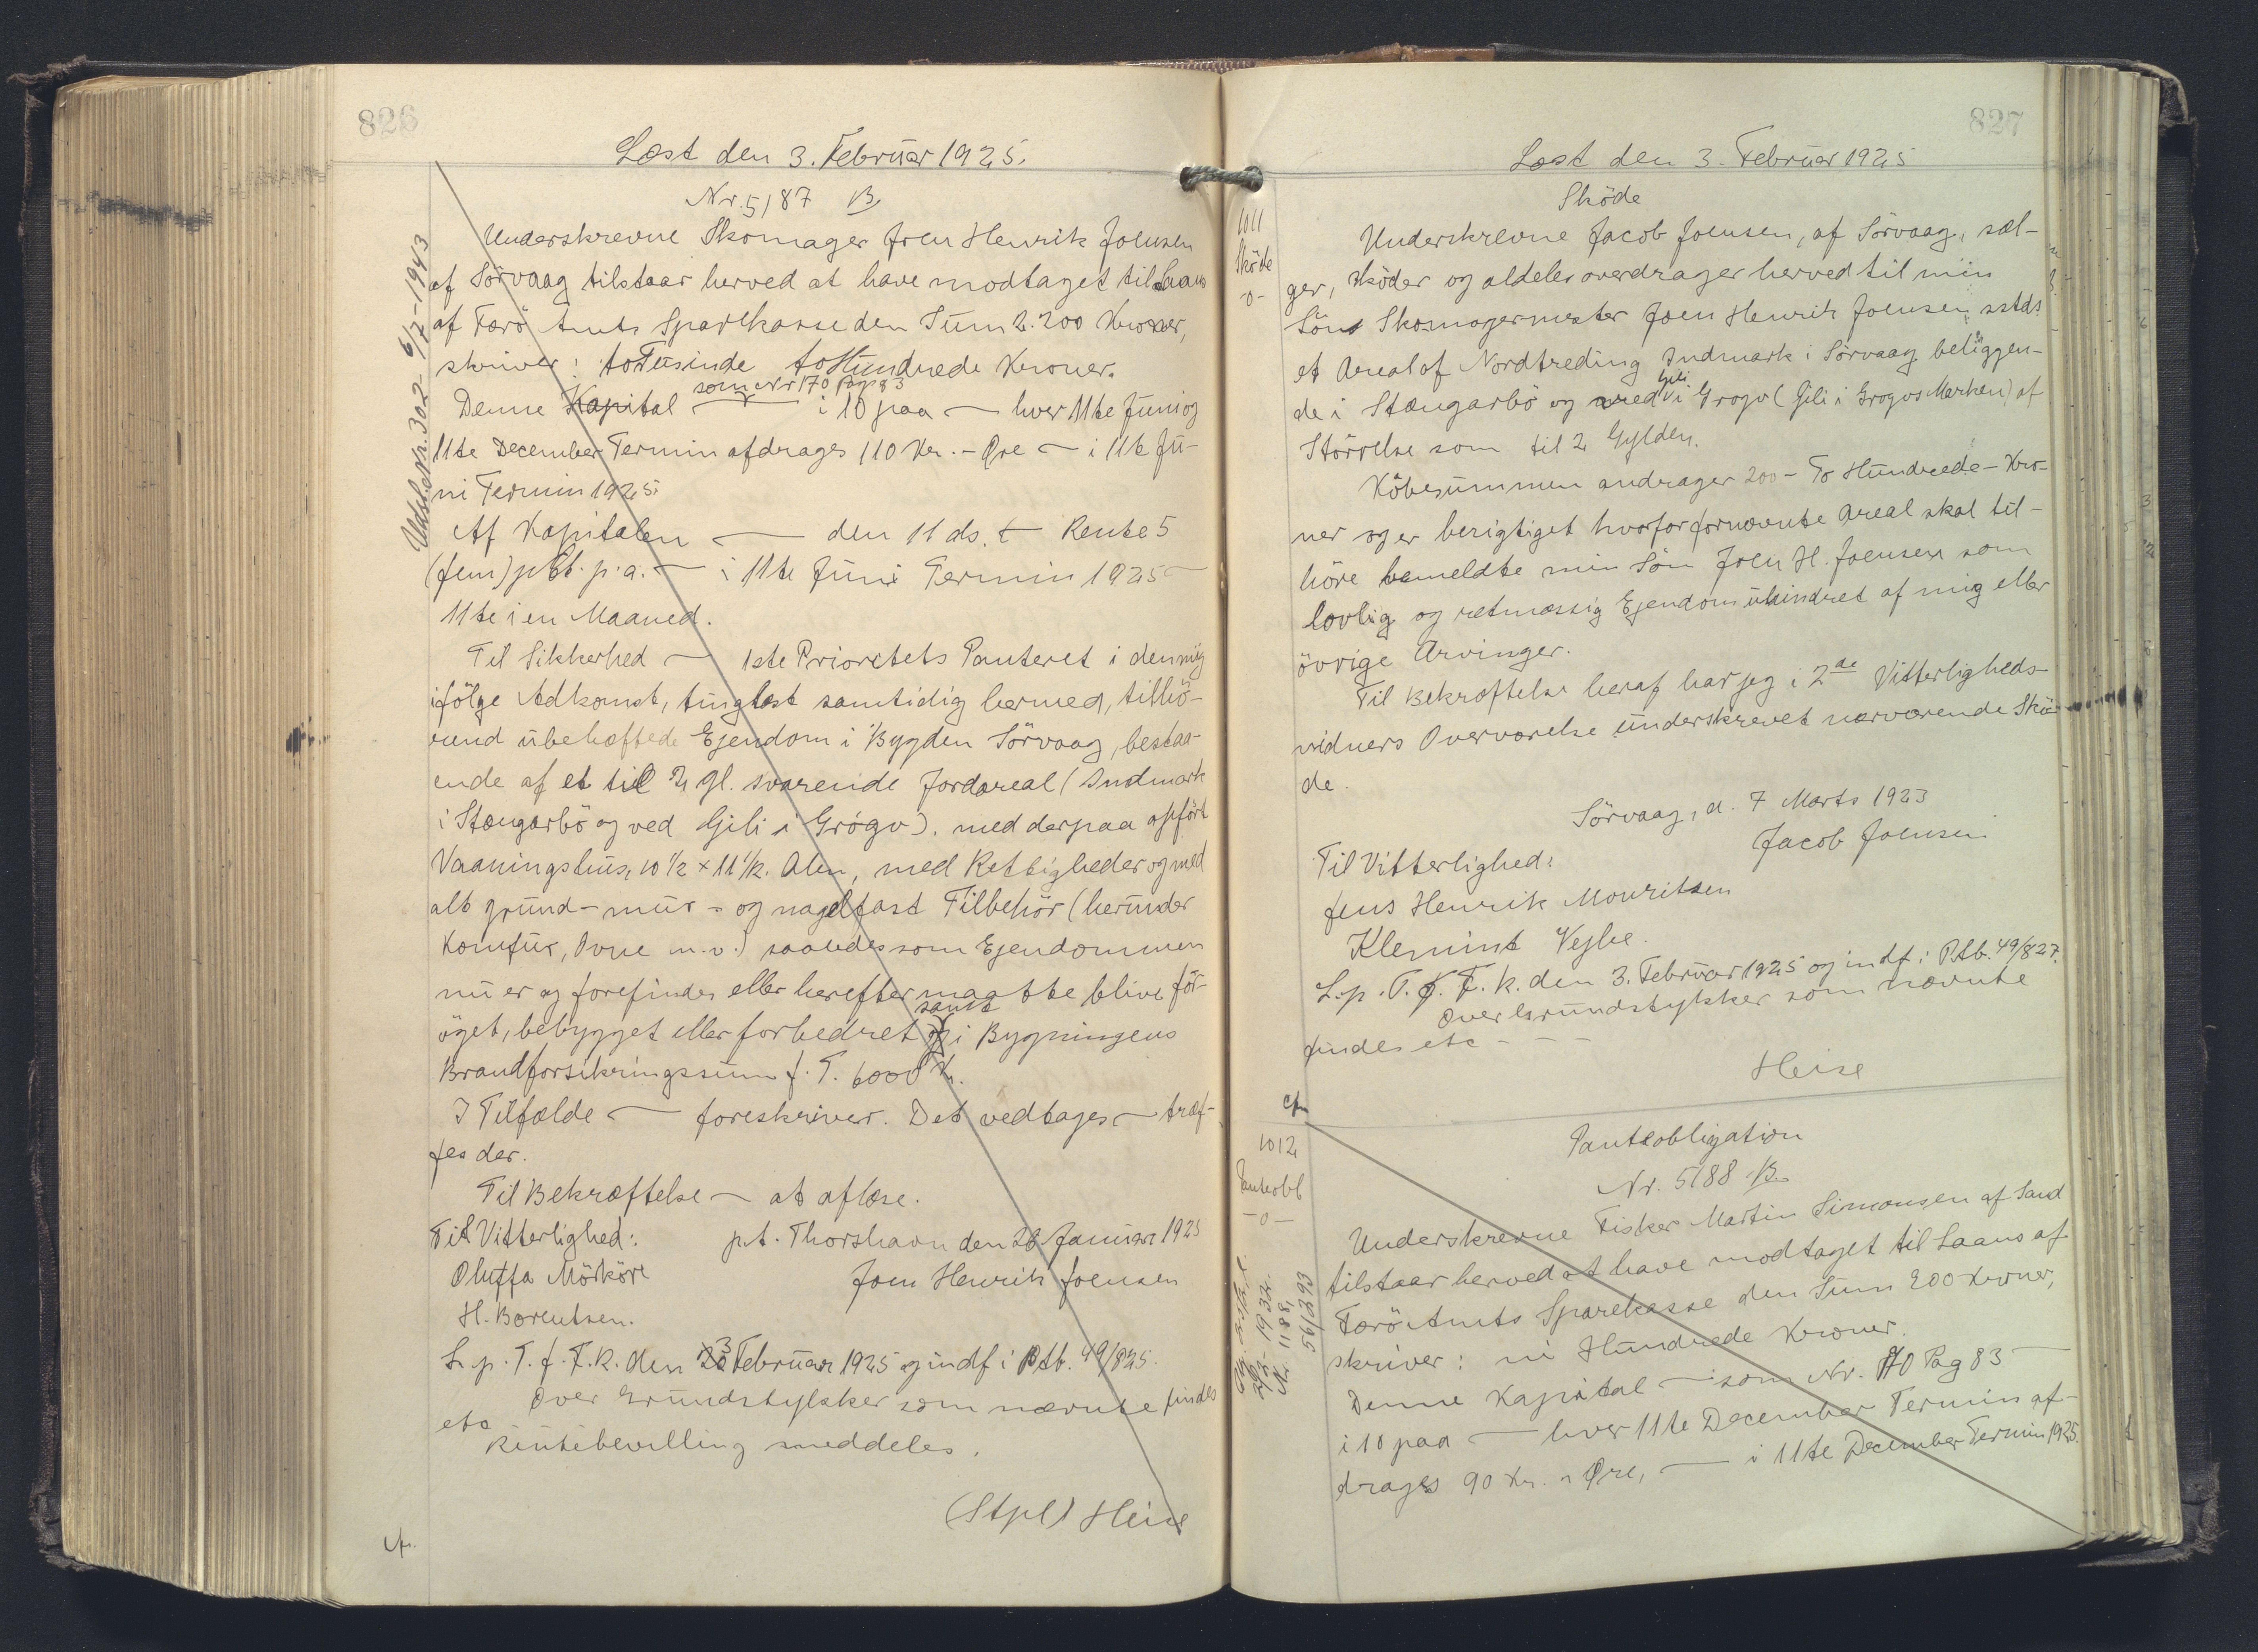 826
Læst den 3. Februar 1925.
Nr. 5187 B.
Underskrevne Skomager Joen Henrik Joensen
af Sörvaag tilstaar herved at have modtaget til Laans
af Færö Amts Sparekasse den Sum 2.200 Kroner,
skriver: to Tusinde to Hundrede Kroner.
som Nr 170 Pag 83
Denne Kapital — i 10 paa — hver 11te Juni og
11te December Termin afdrages 110 Kr. - Øre — i 11te Ju-
ni Termin 1925.
Af Kapitalen — den 11 ds. t — Rente 5
(fem) pCt. p.a. — i 11te Juni Termin 1925 —
11te i en Maaned.
Til Sikkerhed — 1ste Prioritets Panteret i den mig
ifölge Adkomst, tinglæst samtidig hermed, tilhö-
rend ubehæftede Ejendom i Bygden Sörvaag, bestaa-
ende af et til 2 gl. svarende Jordareal (Indmark
i Stængarbö og ved Gili i Grógv). med derpaa opfört
Vaaningshus, 10 1/2 x 11 1/2. Alen, med Rettigheder og med
alt grund- mur- og nagelfast Tilbehör (herunder
Komfur, Ovne m.v.) saaledes som Ejendommen
nu er og forefindes eller herefter maatte blive for-
samt
öget, bebygget eller forbedret og i Bygningens
Brandforsikringssum f. T. 6000 Kr.
I Tilfælde — foreskriver. Det vedtages — træf-
fes der.
Til Bekræftelse — at aflæse.
Til Vitterlighed: p.t. Thorshavn den 26 Januar 1925
Oluffa Mörköre Joen Henrik Joensen
H. Berentsen.
L. p. T. f. F. K. den 3 Februar 1925 og indf i Ptb. 49/825.
Over Grundstykker som nævnte findes
etc
Rentebevilling meddeles.
(Stpl) Heise
Udsl. Nr. 302 - 6/7-1943
cfr.
827
Læst den 3. Februar 1925
1011
Sköde
-0-
Sköde
Underskrevne Jacob Joensen, af Sörvaag, sæl-
ger, sköder og aldeles overdrager herved til min
Söns Skomagermester Joen Henrik Joensen sstds.
et Areal af Nordtreding Indmark i Sörvaag beliggen-
Gili
de i Stængarbö og ved i Grogv (Gili i Grogvs Merken) af
Störrelse som til 2 Gylden.
Köbesummen andrager 200 - To Hundrede - Kro-
ner og er berigtiget hvorfor fornævnte Areal skal til-
höre bemeldte min Sön Joen H. Joensen som
lovlig og retmæssig Ejendom uhindret af mig eller
övrige Arvinger.
Til Bekræftelse heraf har jeg i 2de Vitterligheds-
vidners Overværelse underskrevet nærværende Skö-
de.
Sörvaag, d. 7 Marts 1923
Jacob Joensen
Til Vitterlighed:
Jens Henrik Mouritsen
Klemint Vejhe.
L. p. T. f. F. K. den 3. Februar 1925 og indf. i Ptb. 49/827.
Over Grundstykker som nævnte
findes etc - - -
Heise
cfr
1012
Panteobl
-0-
Panteobligation
Nr. 5188 B.
Underskrevne Fisker Martin Simonsen af Sand
tilstaar herved at have modtaget til Laans af
Færö Amts Sparekasse den Sum 900 Kroner,
skriver: ni Hundrede Kroner.
Denne Kapital — som Nr. 170 Pag 83 —
i 10 paa — hver 11te December Termin af-
drages 90 Kr. - Øre, — i 11te December Termin 1925.
1932.
Nr. 1188,
56/293